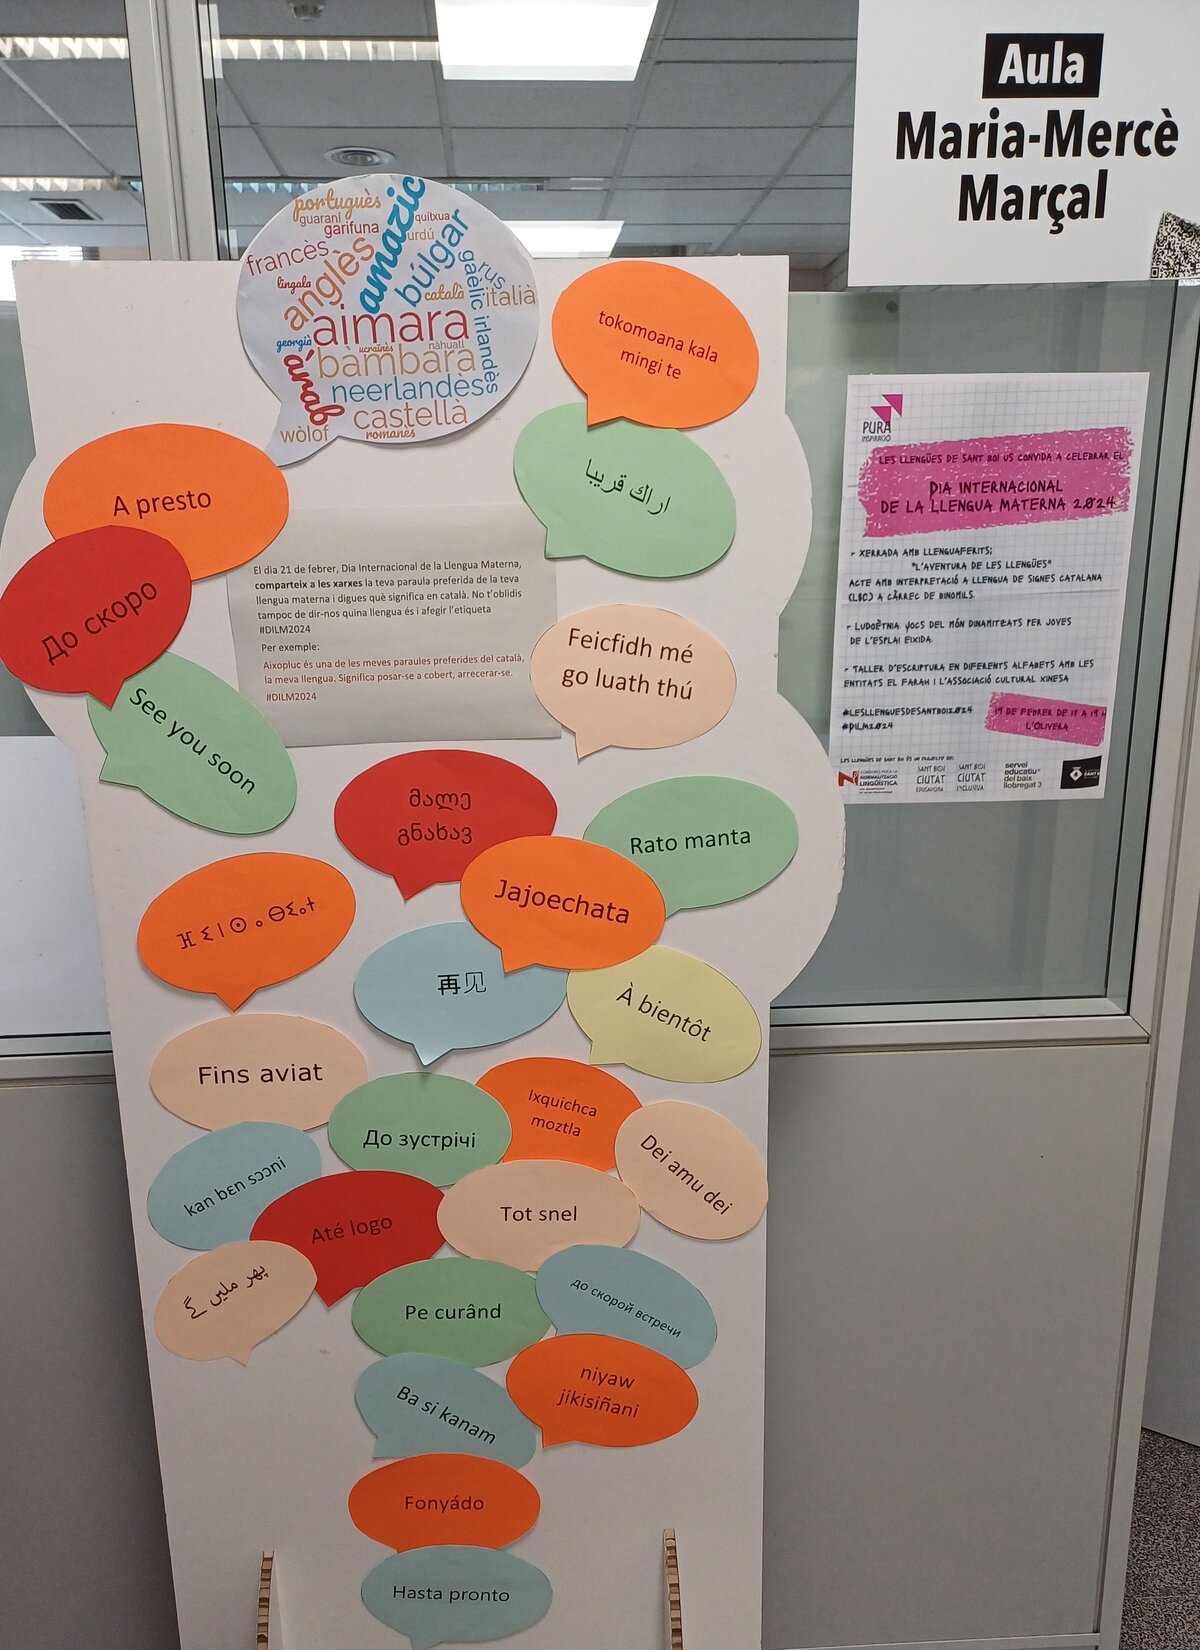 Aula
Maria-Mercè
Marçal
portuguès
guaraní
garifuna
amazic
quítxua
urdú
francès
anglès
búlgar
gaèlic irlandès
rus
lingala
català
italià
georgià
aimara
ucraïnès
nàhuatl
àrab
bàmbara
neerlandès
castellà
wòlof
romanès
tokomoana kala
mingi te
اراك قريبا
A presto
До скоро
See you soon
El dia 21 de febrer, Dia Internacional de la Llengua Materna,
comparteix a les xarxes la teva paraula preferida de la teva
llengua materna i digues què significa en català. No t'oblidis
tampoc de dir-nos quina llengua és i afegir l'etiqueta
#DILM2024
Per exemple:
Aixopluc és una de les meves paraules preferides del català,
la meva llengua. Significa posar-se a cobert, arrecerar-se.
#DILM2024
Feicfidh mé
go luath thú
მალე
გნახავ
Rato manta
Jajoechata
ⴼⵉⵏⵙ ⴰ ⴱⵉⴰⵜ
再见
À bientôt
Fins aviat
До зустрічі
Ixquichca
moztla
Dei amu dei
kan bɛn sɔɔni
Até logo
Tot snel
پھر ملیں گے
Pe curând
до скорой встречи
niyaw
jikisiñani
Ba si kanam
Fonyádo
Hasta pronto
PURA
INSPIRACIÓ
LES LLENGÜES DE SANT BOI US CONVIDA A CELEBRAR EL
DIA INTERNACIONAL
DE LA LLENGUA MATERNA 2024
- XERRADA AMB LLENGUAFERITS:
"L'AVENTURA DE LES LLENGÜES"
ACTE AMB INTERPRETACIÓ A LLENGUA DE SIGNES CATALANA
(LSC) A CÀRREC DE BINOMILS.
- LUDOÈTNIA. JOCS DEL MÓN DINAMITZATS PER JOVES
DE L'ESPLAI EIXIDA.
- TALLER D'ESCRIPTURA EN DIFERENTS ALFABETS AMB LES
ENTITATS EL FARAH I L'ASSOCIACIÓ CULTURAL XINESA
#LESLLENGUESDESANTBOI2024
#DILM2024
19 DE FEBRER DE 17 A 19 H
L'OLIVERA
LES LLENGÜES DE SANT BOI ÉS UN PROJECTE DE:
CONSORCI PER A LA
NORMALITZACIÓ
LINGÜÍSTICA
SANT BOI
CIUTAT
EDUCADORA
SANT BOI
CIUTAT
INCLUSIVA
servei
educatiu
del baix
llobregat 3